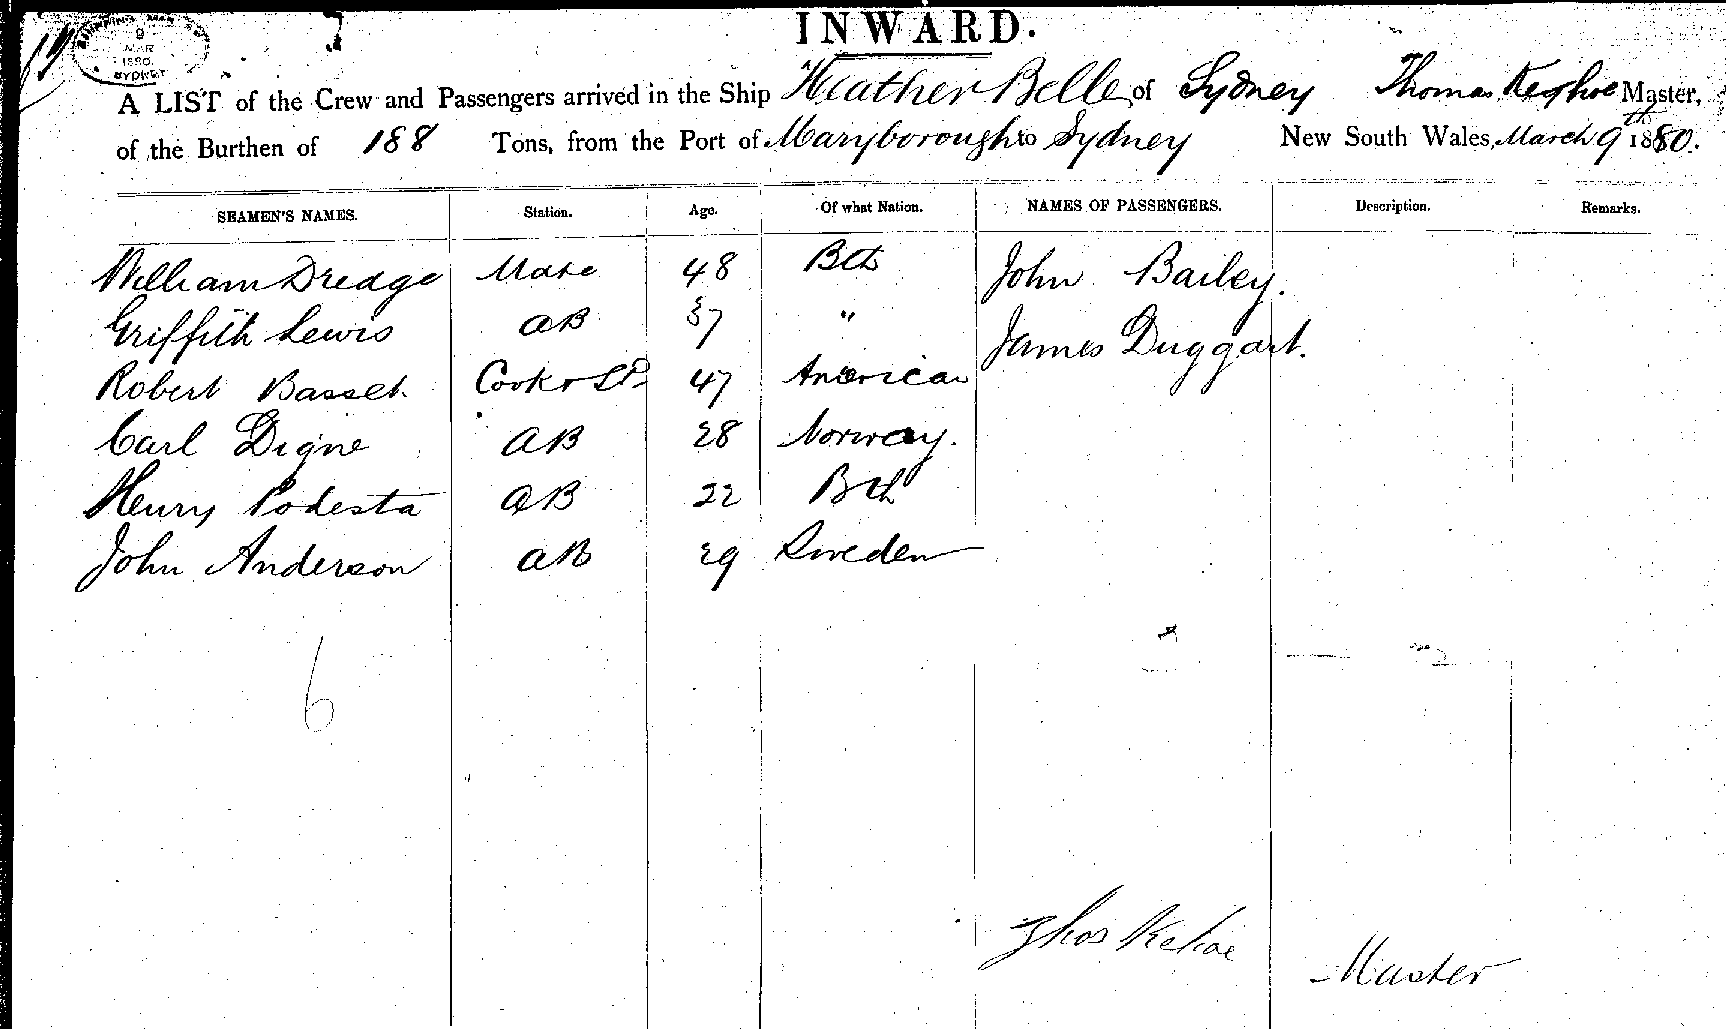 9
MAR
1880.
SYDNEY
INWARD.
A LIST of the Crew and Passengers arrived in the Ship Heather Belle of Sydney Thomas Keghoe Master,
of the Burthen of 188 Tons, from the Port of Maryborough to Sydney New South Wales, March 9th 1880.
SEAMEN'S NAMES. Station. Age. Of what Nation. NAMES OF PASSENGERS. Description. Remarks.
William Dredge Mate 48 Bth John Bailey.
Griffith Lewis AB 37 " James Duggart.
Robert Basset. Cook & St 47 American
Carl Digne AB 28 Norway.
Henry Podesta AB 22 Bth
John Anderson AB 29 Sweden
6
Thos Kehoe
Master